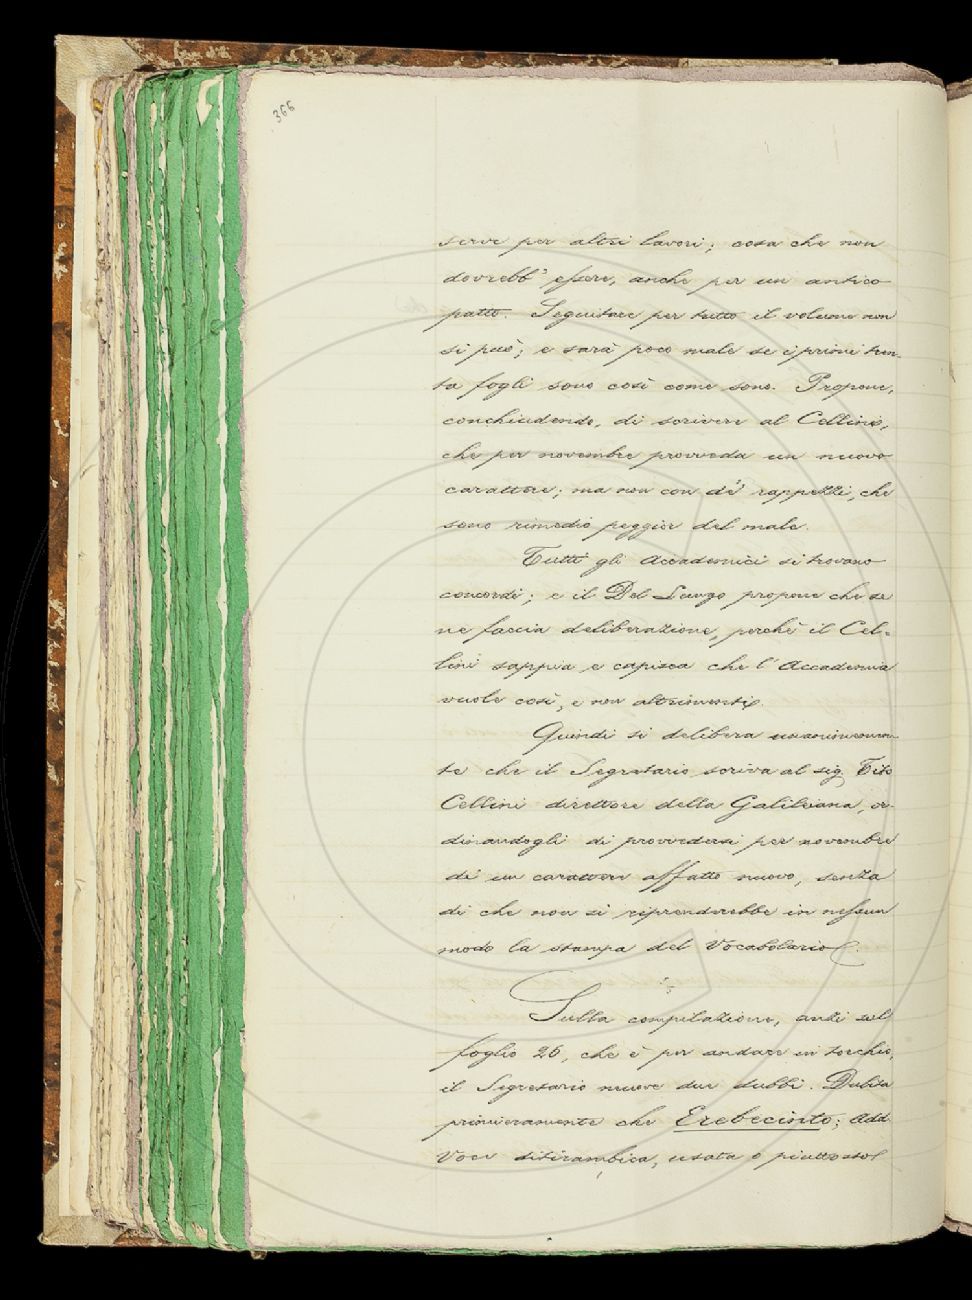 366
serve per altri lavori; cosa che non
dovrebb' essere, anche per un antico
patto. Seguitare per tutto il volume non
si può; e sarà poco male se i primi tren-
ta fogli sono così come sono. Propone,
conchiudendo, di scrivere al Cellini,
che per novembre provveda un nuovo
carattere; ma non con de' rappezzi, che
sono rimedio peggior del male.
Tutti gli Accademici si trovano
concordi; e il Del Lungo propone che se
ne faccia deliberazione, perchè il Cel-
lini sappia e capisca che l'Accademia
vuole così, e non altrimenti.
Quindi si delibera unanimemen-
te che il Segretario scriva al sig. Tito
Cellini direttore della Galileiana, or-
dinandogli di provvedersi per novembre
di un carattere affatto nuovo, senza
di che non si riprenderebbe in nessun
modo la stampa del Vocabolario.
Sulla compilazione, anzi sul
foglio 26, che è per andare in torchio,
il Segretario muove due dubbi. Dubita
primieramente che Erebecinto; Add.
Voce ditirambica, usata o piuttosto